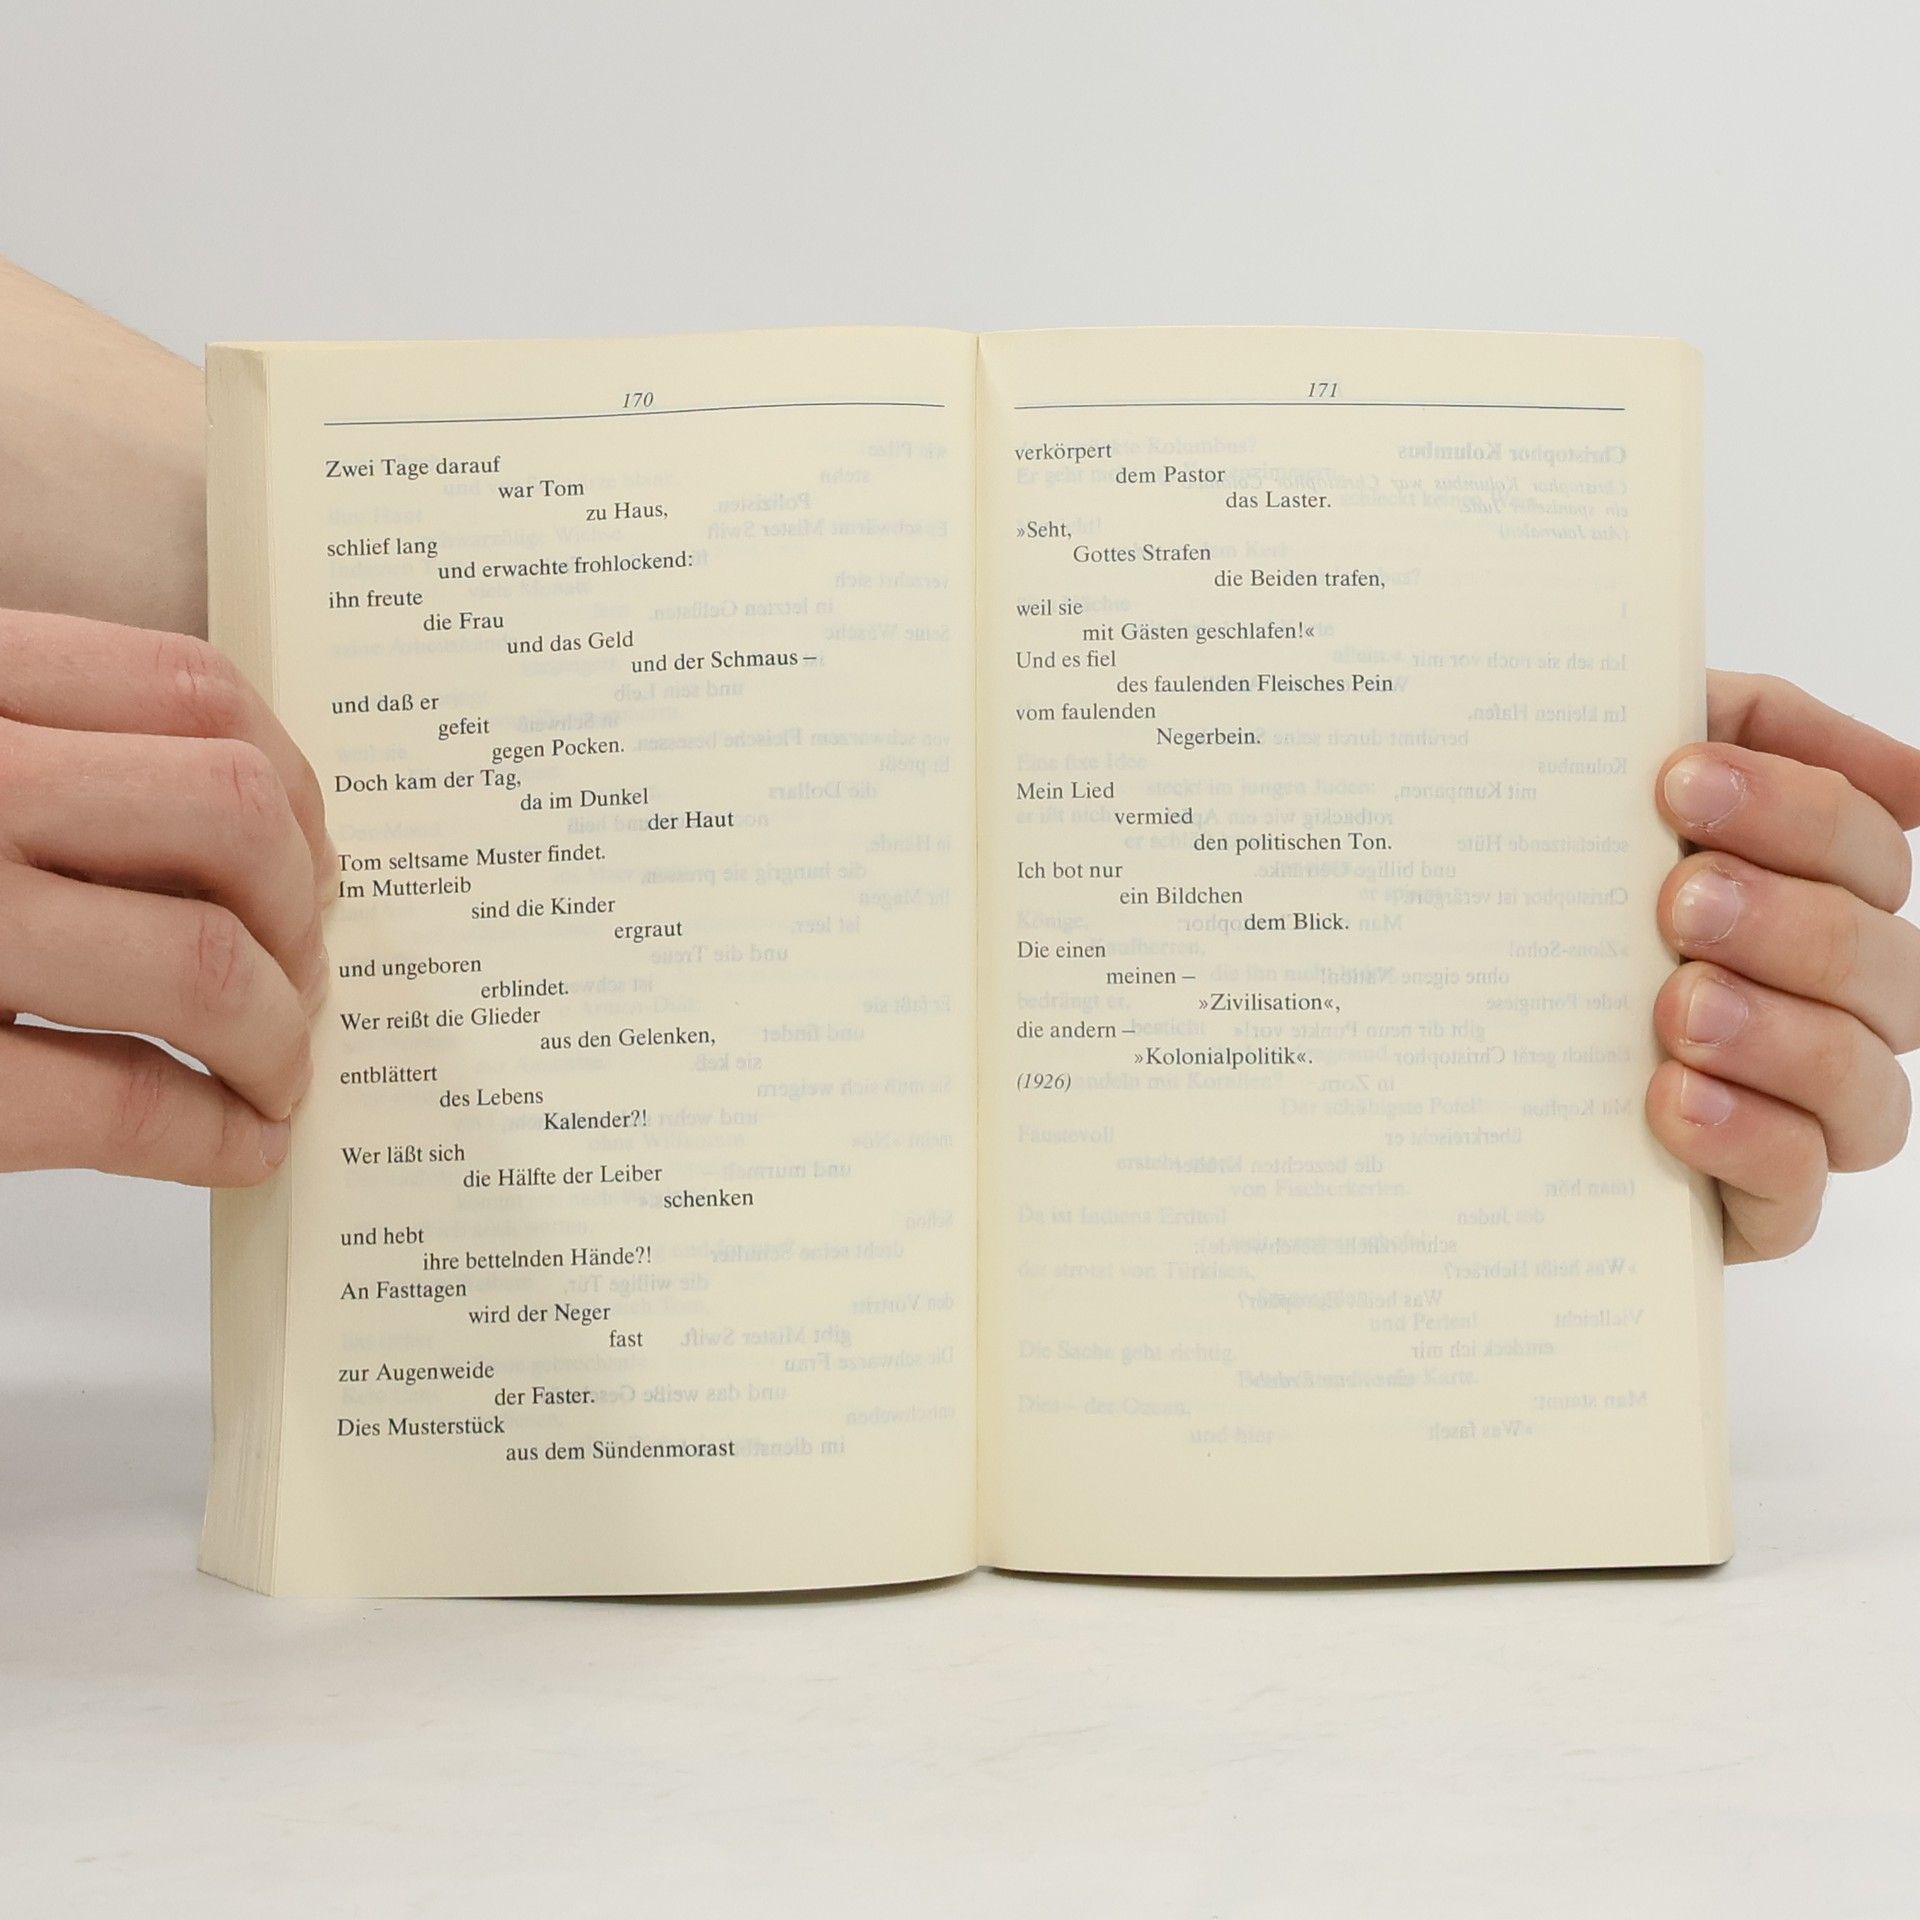 170
Zwei Tage darauf
war Tom
zu Haus,
schlief lang
und erwachte frohlockend:
ihn freute
die Frau
und das Geld
und der Schmaus –
und daß er
gefeit
gegen Pocken.
Doch kam der Tag,
da im Dunkel
der Haut
Tom seltsame Muster findet.
Im Mutterleib
sind die Kinder
ergraut
und ungeboren
erblindet.
Wer reißt die Glieder
aus den Gelenken,
entblättert
des Lebens
Kalender?!
Wer läßt sich
die Hälfte der Leiber
schenken
und hebt
ihre bettelnden Hände?!
An Fasttagen
wird der Neger
fast
zur Augenweide
der Faster.
Dies Musterstück
aus dem Sündenmorast
171
verkörpert
dem Pastor
das Laster.
»Seht,
Gottes Strafen
die Beiden trafen,
weil sie
mit Gästen geschlafen!«
Und es fiel
des faulenden Fleisches Pein
vom faulenden
Negerbein.
Mein Lied
vermied
den politischen Ton.
Ich bot nur
ein Bildchen
dem Blick.
Die einen
meinen –
»Zivilisation«,
die andern –
»Kolonialpolitik«.
(1926)